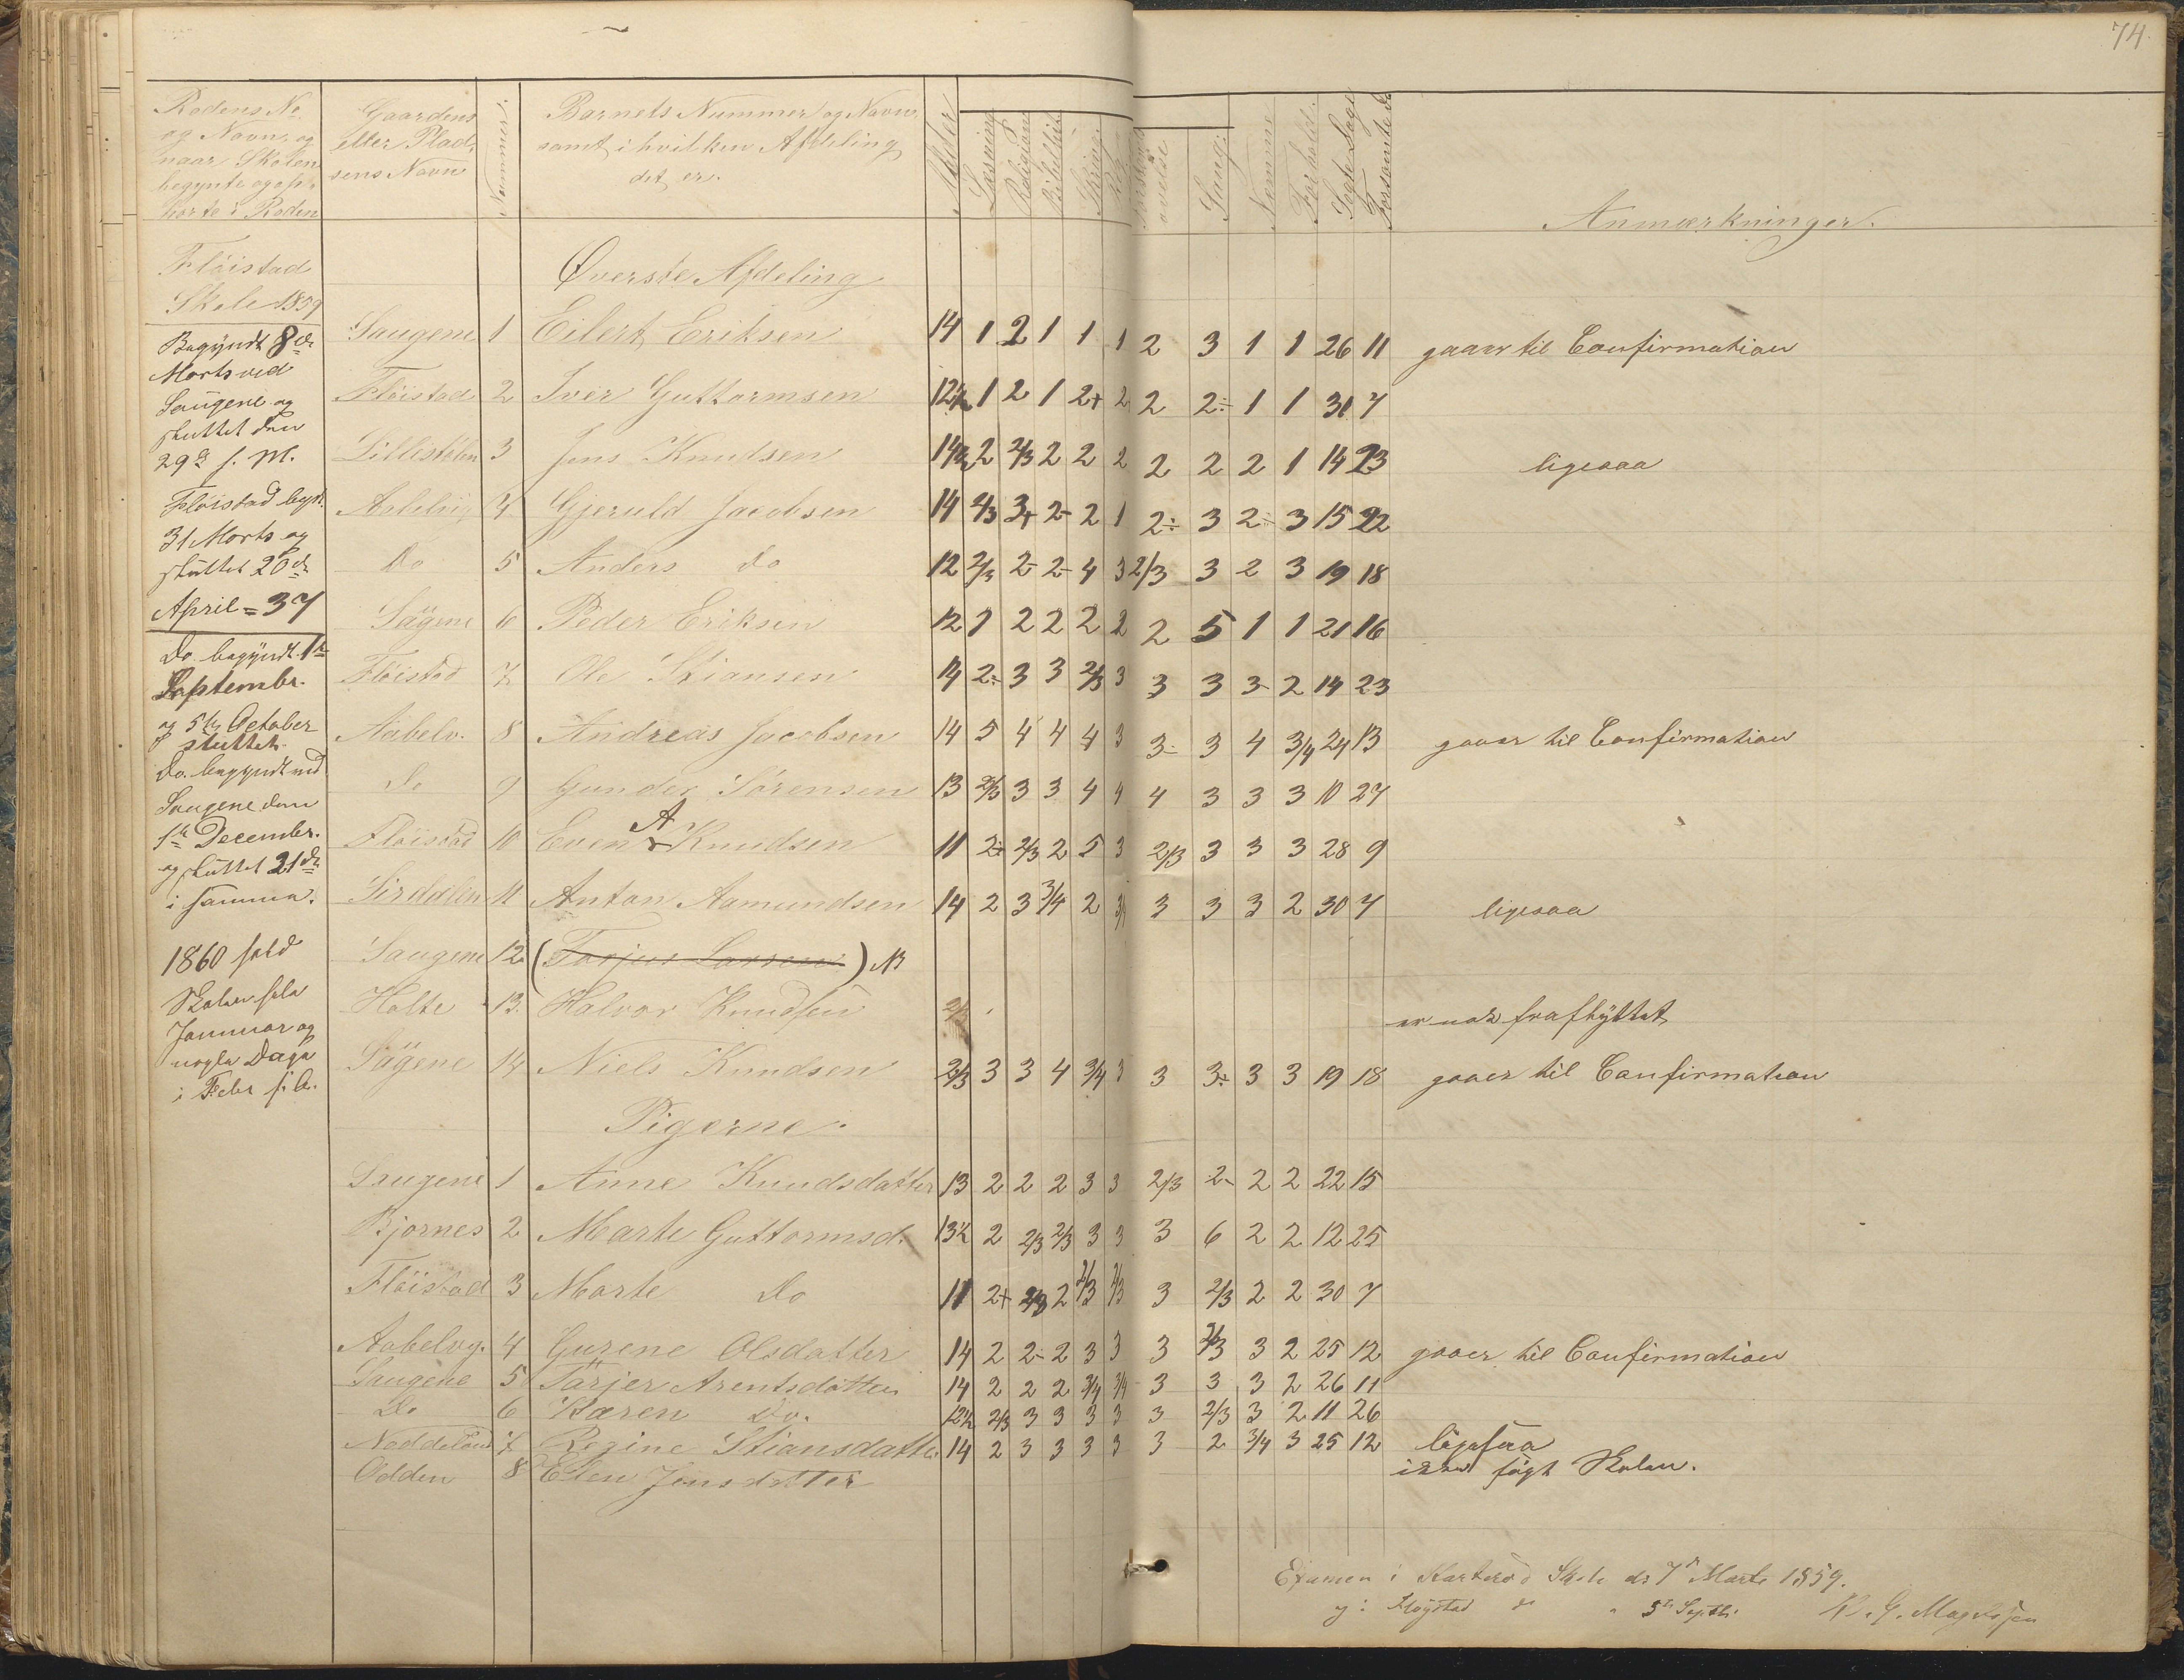 74.
Rodens No
og Navn, og
naar Skolen
begynte og op-
hørte i Roden
Gaardens
eller Plad-
sens Navn
Nummer.
Barnets Nummer og Navn,
samt i hvilken Afdeling
det er.
Alder
Læsning
Religion
Skriv.
Sang.
Nemme
Forhold.
Søgte Dage
Forsømte Do
Anmærkninger.
Fløistad
Skole 1859
Begyndt 8de
Marts ved
Saugene og
sluttet den
29de s. M.
Fløistad begt.
31 Marts og
sluttet 20de
April = 37
Do. begyndt 1te
Septembr.
og 5te October
sluttet.
Do. begyndt ved
Saugene den
1te December.
og sluttet 21de
i samme.
1860 hold
Skolen hele
Januar og
nogle Dage
i Febr s. A.
Øverste Afdeling
Saugene 1 Eilert Eriksen 14 1 2 1 1 1 2 3 1 1 26 11 gaaer til Confirmation
Fløistad 2 Iver Guttormsen 12½ 1 2 1 2+ 2 2 2÷ 1 1 30 7
Lillestølen 3 Jens Knudsen 14½ 2 2/3 2 2 2 2 2 2 1 14 23 ligesaa
Aabelvig 4 Gjeruld Jacobsen 14 2/3 3+ 2- 2 1 2÷ 3 2÷ 3 15 22
Do 5 Anders Do 12 2/3 2- 2- 4 3 2/3 3 2 3 19 18
Sagene 6 Peder Eriksen 12 1 2 2 2 2 2 5 1 1 21 16
Fløistad 7 Ole Stiansen 14 2÷ 3 3 2/3 3 3 3 3- 2 14 23
Aabelv. 8 Andreas Jacobsen 14 5 4 4 4 3 3- 3 4 3/4 24 13 gaaer til Confirmation
Do 9 Gunder Sørensen 13 2/3 3 3 4 4 4 3 3 3 10 27
Fløistad 10 Even A Knudsen 11 2+ 2/3 2 5 3 2/3 3 3 3 28 9
Sirdalen 11 Anton Aamundsen 14 2 3 3/4 2 3/4 3 3 3 2 30 7 ligesaa
Saugene 12 (Tarjus Larsen) NB
Holte 13. Halvor Knudsen er nok fraflyttet
Sagene 14 Niels Knudsen 3 3 4 3/4 3 3 3+ 3 3 19 18 gaaer til Confirmation
Pigerne.
Saugene 1 Anne Knudsdatter 13 2 2 2 3 3 2/3 2- 2 2 22 15
Bjørnes 2 Marte Guttormsd. 13½ 2 2/3 2/3 3 3 3 6 2 2 12 25
Fløistad 3 Marte Do 11 2+ 2/3 2 2/3 2/3 3 2/3 2 2 30 7
Aabelvg. 4 Gurene Olsdatter 14 2 2- 2 3 3 3 2/3 3 2 25 12 gaaer til Confirmation
Saugene 5 Tarjer Arentsdatter 14 2 2 2 3/4 3/4 3 3 3 2 26 11
Do 6 Karen Do. 12½ 2/3 3 3 3 3 3 2/3 3 2 11 26
Naddeland 7 Regine Stiansdatter 14 2 3 3 3 3 3 2 3/4 3 25 12 ligesaa
Odden 8 Elen Jensdatter ikke søgt Skolen.
Examen i Skarterød Skole d: 7de Marts 1859.
og i Fløystad do " 5te Septb: